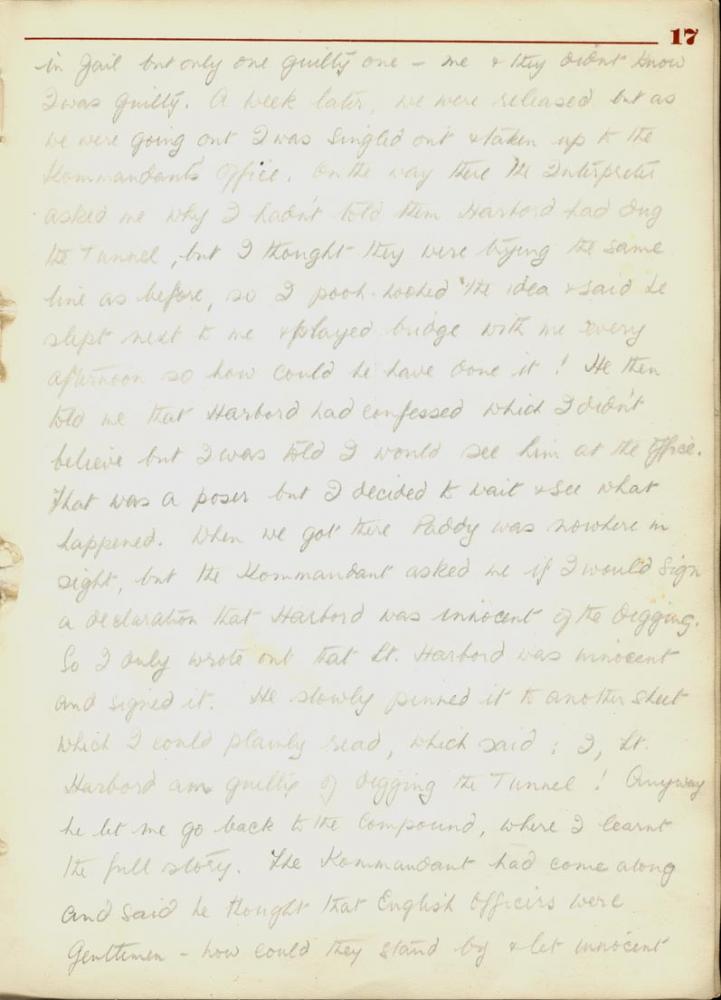 17
in Jail but only one guilty one - me & they didn't know
I was guilty. A week later, we were released but as
we were going out I was singled out & taken up to the
Kommandant's Office. On the way there the Interpreter
asked me why I hadn't told them Harbord had dug
the Tunnel, but I thought they were trying the same
line as before, so I pooh-hoohed the idea & said he
slept next to me & played bridge with me every
afternoon so how could he have done it! He then
told me that Harbord had confessed which I didn't
believe but I was told I would see him at the Office.
That was a poser but I decided to wait & see what
happened. When we got there Paddy was nowhere in
sight, but the Kommandant asked me if I would sign
a declaration that Harbord was innocent of the digging.
So I duly wrote out that Lt. Harbord was innocent
and signed it. He slowly pinned it to another sheet
which I could plainly read, which said: I, Lt.
Harbord am guilty of digging the Tunnel! Anyway
he let me go back to the Compound, where I learnt
the full story. The Kommandant had come along
and said he thought that English Officers were
Gentlemen - how could they stand by & let innocent